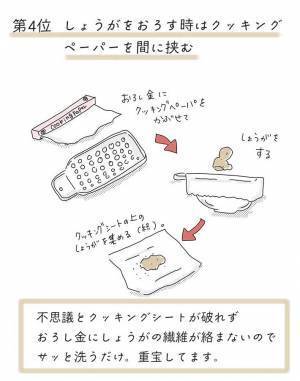 第4位 しょうがをおろす時はクッキング
ペーパーを間に挟む
cooking paper
おろし金に
クッキングペーパーを
かぶせて
しょうがを
する
クッキングシートの上の
しょうがを集める(終)。
不思議とクッキングシートが破れず
おろし金にしょうがの繊維が絡まないので
サッと洗うだけ。重宝してます。